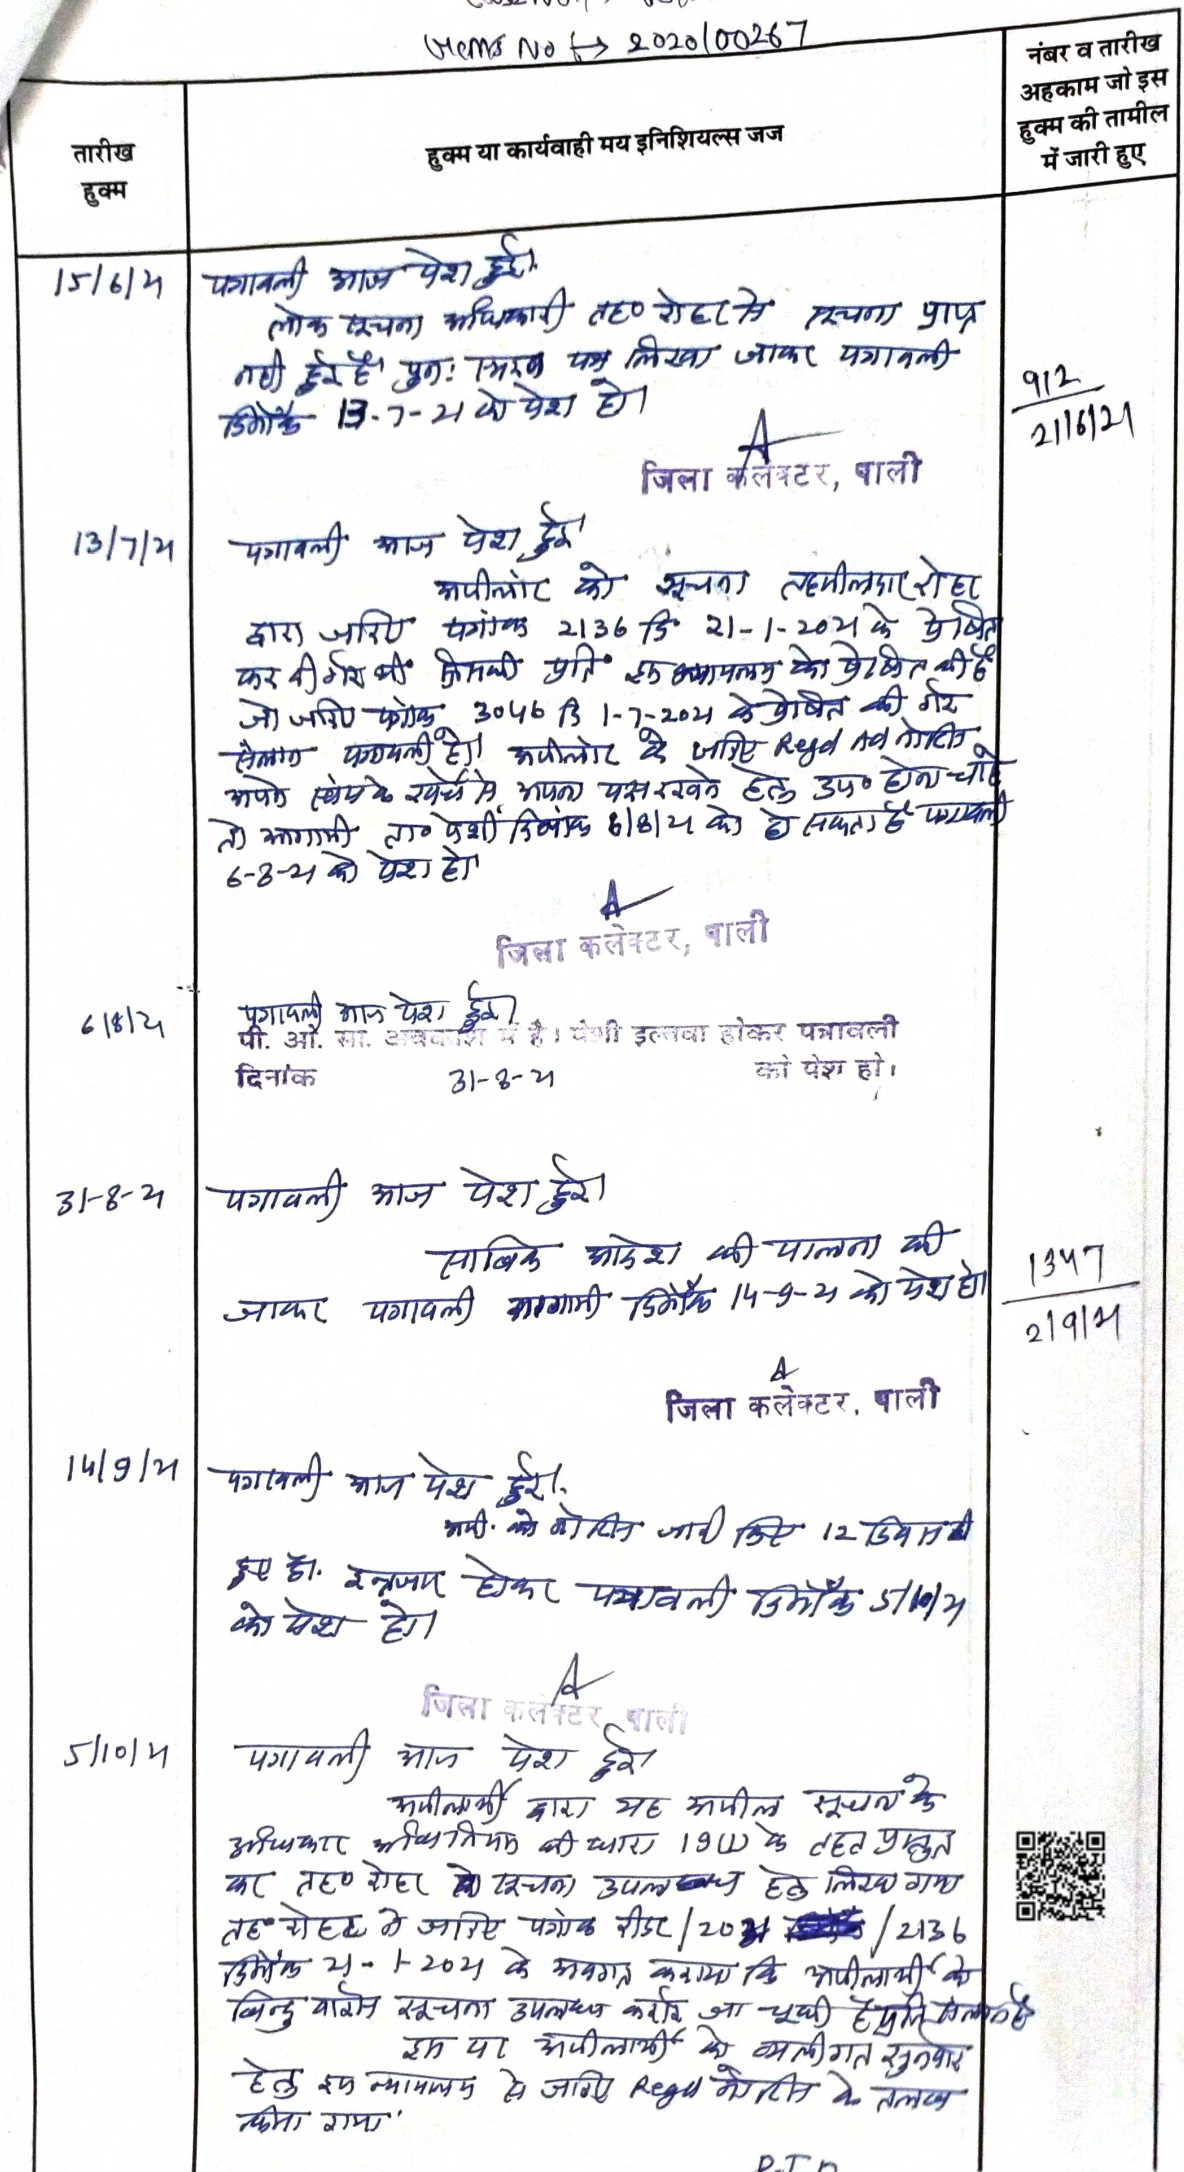 No 2020/00267
तारीख
हुक्म
हुक्म या कार्यवाही मय इनिशियल्स जज
नंबर व तारीख
अहकाम जो इस
हुक्म की तामील
में जारी हुए
15/6/21 पत्रावली आज पेश हुई।
लोक सूचना अधिकारी तह० रोहट से सूचना प्राप्त
नही हुई है पुनः पत्र लिखा जाकर पत्रावली
दिनाँक 13-7-21 को पेश हो।
912
21/6/21
जिला कलेक्टर, पाली
13/7/21 पत्रावली आज पेश हुई।
अपीलांट को सूचना तहसीलदार रोहट
द्वारा जरिए पत्रांक 2136 दि 21-1-2021 के प्रेषित
कर दी गई थी जिसकी प्रति इस न्यायालय को प्रेषित की है
जो जरिए क्रमांक 3046 दि 1-7-2021 के प्रेषित की गई
संलग्न पत्रावली है। अपीलांट को जरिए Regd AD नोटिस
अपने स्वयं के खर्चे से अपना पक्ष रखने हेतु उप० होना चाहे
तो आगामी ता० पेशी दिनांक 6/8/21 को हो सकता है पत्रावली
6-8-21 को पेश हो।
जिला कलेक्टर, पाली
6/8/21 पत्रावली आज पेश हुई।
पी. ओ. सा. अवकाश में है। पेशी इल्तवा होकर पत्रावली
दिनांक 31-8-21 को पेश हो।
31-8-21 पत्रावली आज पेश हुई।
साबिक आदेश की पालना की
जाकर पत्रावली आगामी दिनाँक 14-9-21 को पेश हो।
1347
2/9/21
जिला कलेक्टर, पाली
14/9/21 पत्रावली आज पेश हुई।
अपी. को नोटिस जारी किए 12 दिवस ही
हुए है। इन्तजार होकर पत्रावली दिनाँक 5/10/21
को पेश हो।
जिला कलेक्टर, पाली
5/10/21 पत्रावली आज पेश हुई।
अपीलार्थी द्वारा यह अपील सूचना के
अधिकार अधिनियम की धारा 19(1) के तहत प्रस्तुत
कर तह० रोहट से सूचना उपलब्ध हेतु लिखा गया
तह० रोहट ने जरिए पत्रांक रीडर/2021/2136
दिनाँक 21-1-2021 के अवगत कराया कि अपीलार्थी को
बिन्दु वाईज सूचना उपलब्ध कराई जा चुकी है प्रति संलग्न है
इस पर अपीलार्थी को व्यक्तीगत सुनवाई
हेतु इस न्यायालय से जरिए Regd नोटिस के तलब
किया गया।
P.T.O